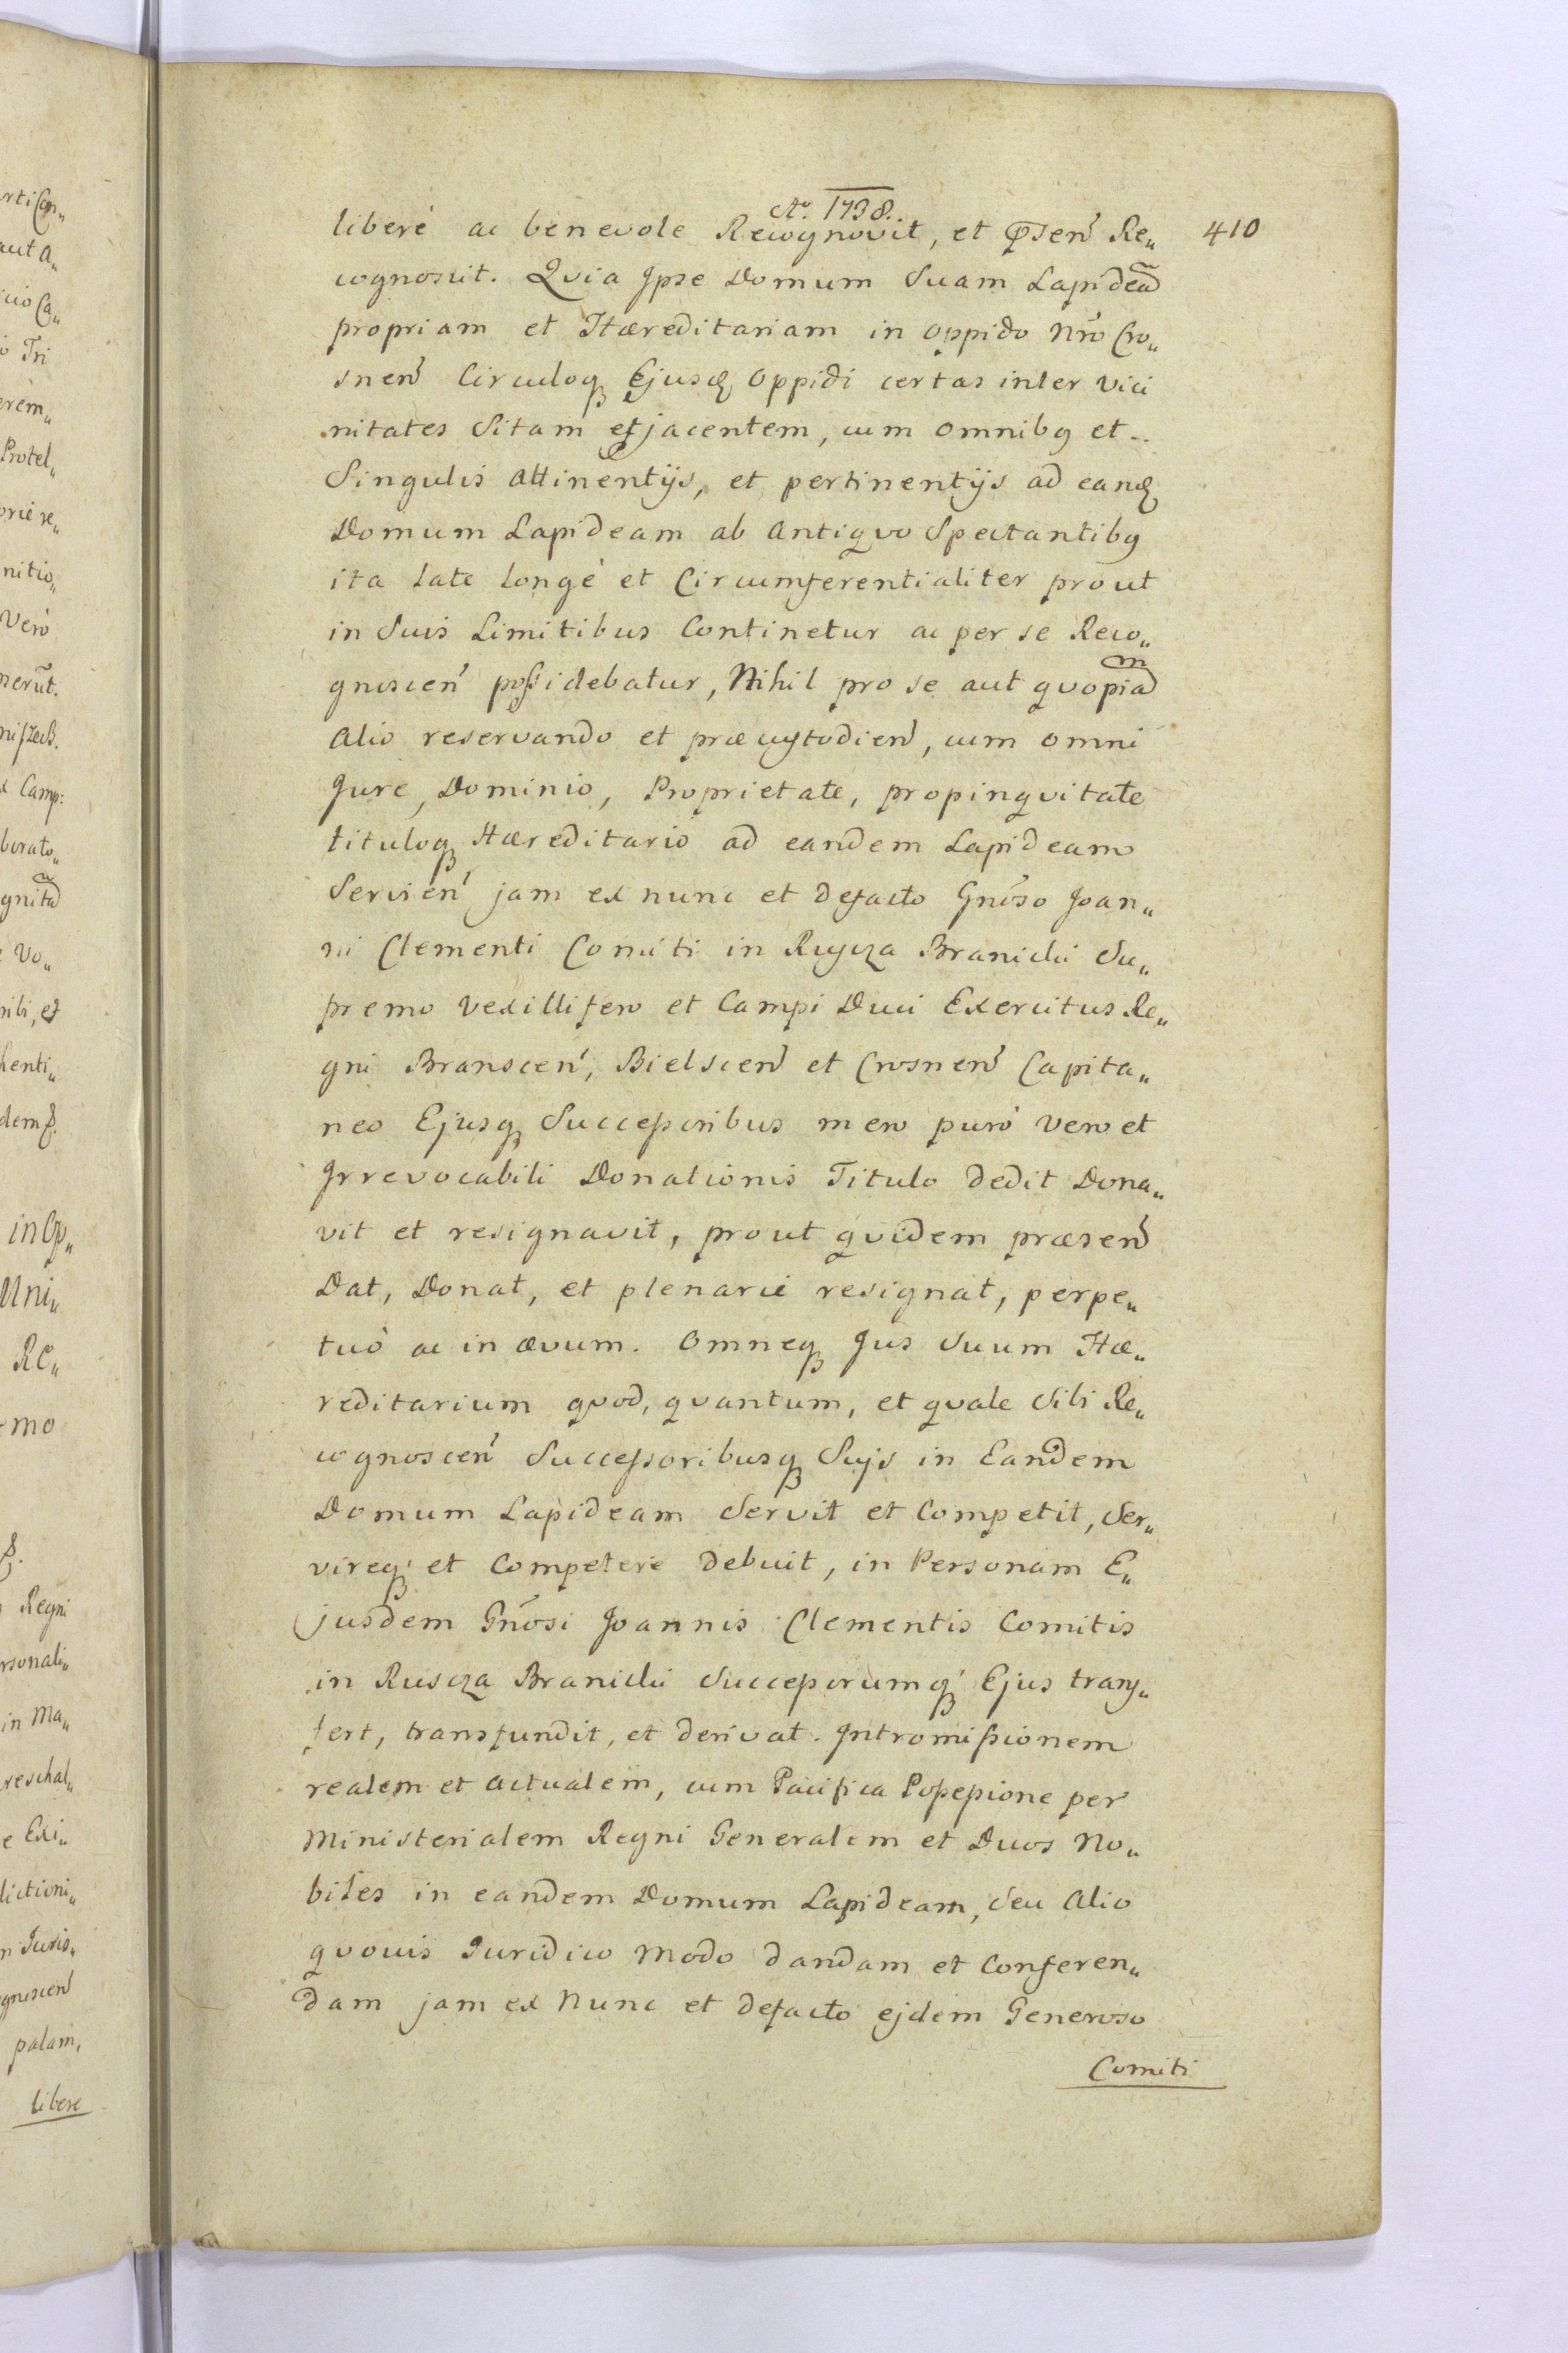 Aō. 1738.
410
liberè ac benevole Recognovit, et Pñsen̄ Re„
cognoscit. Qvia Jpse Domum Suam Lapideã
propriam et Hæreditariam in oppido Nr̄o Cro„
snen̄ Circuloq̨ Ejusd̨ Oppidi certas inter vici
nitates Sitam et jacentem, cum omnibg et..
Singulis attinentijs, et pertinentijs ad eand̨
Domum Lapideam ab Antiqvo Spectantibg
ita late longè et Circumferentialiter prout
in Suis Limitibus Continetur ac per se Reco„
gnoscen̄ possidebatur, Nihil pro se aut qvopiam
Alio reservando et præcustodien̄, cum omni
Jure, Dominio, Proprietate, propinqvitate
tituloq̨ Hæreditario ad eandem Lapideam
Servien̄ jam ex nunc et defacto Gnōso Joan„
ni Clementi Comiti in Ruscza Branicki Su„
premo Vexillifero et Campi Duci Exercitus Re„
gni Branscen̄, Bielscen̄ et Crosnen̄ Capita„
neo Ejusq̨ Successoribus mero purò vero et
Jrrevocabili Donationis Titulo dedit Dona„
vit et resignavit, prout qvidem præsen̄
Dat, Donat, et plenariè resignat, perpe„
tuò ac in ævum. Omneq̨ Jus Suum Hæ„
reditarium qvod, qvantum, et qvale Sibi Re„
cognoscen̄ Successoribusq̨ Suijs in Eandem
Domum Lapideam Servit et Competit, Ser„
vireq̨ et Competere debuit, in Personam E„
jusdem Gnōsi Joannis Clementis Comitis
in Ruscza Branicki Successorumq̨ Ejus trans„
fert, transfundit, et derivat. Jntromissionem
realem et actualem, cum Pacifica Possessione per
Ministerialem Regni Generalem et Duos No„
biles in eandem Domum Lapideam, Seu Alio
qvovis Juridico modo dandam et Conferen„
dam jam ex Nunc et defacto ejdem Generoso
Comiti